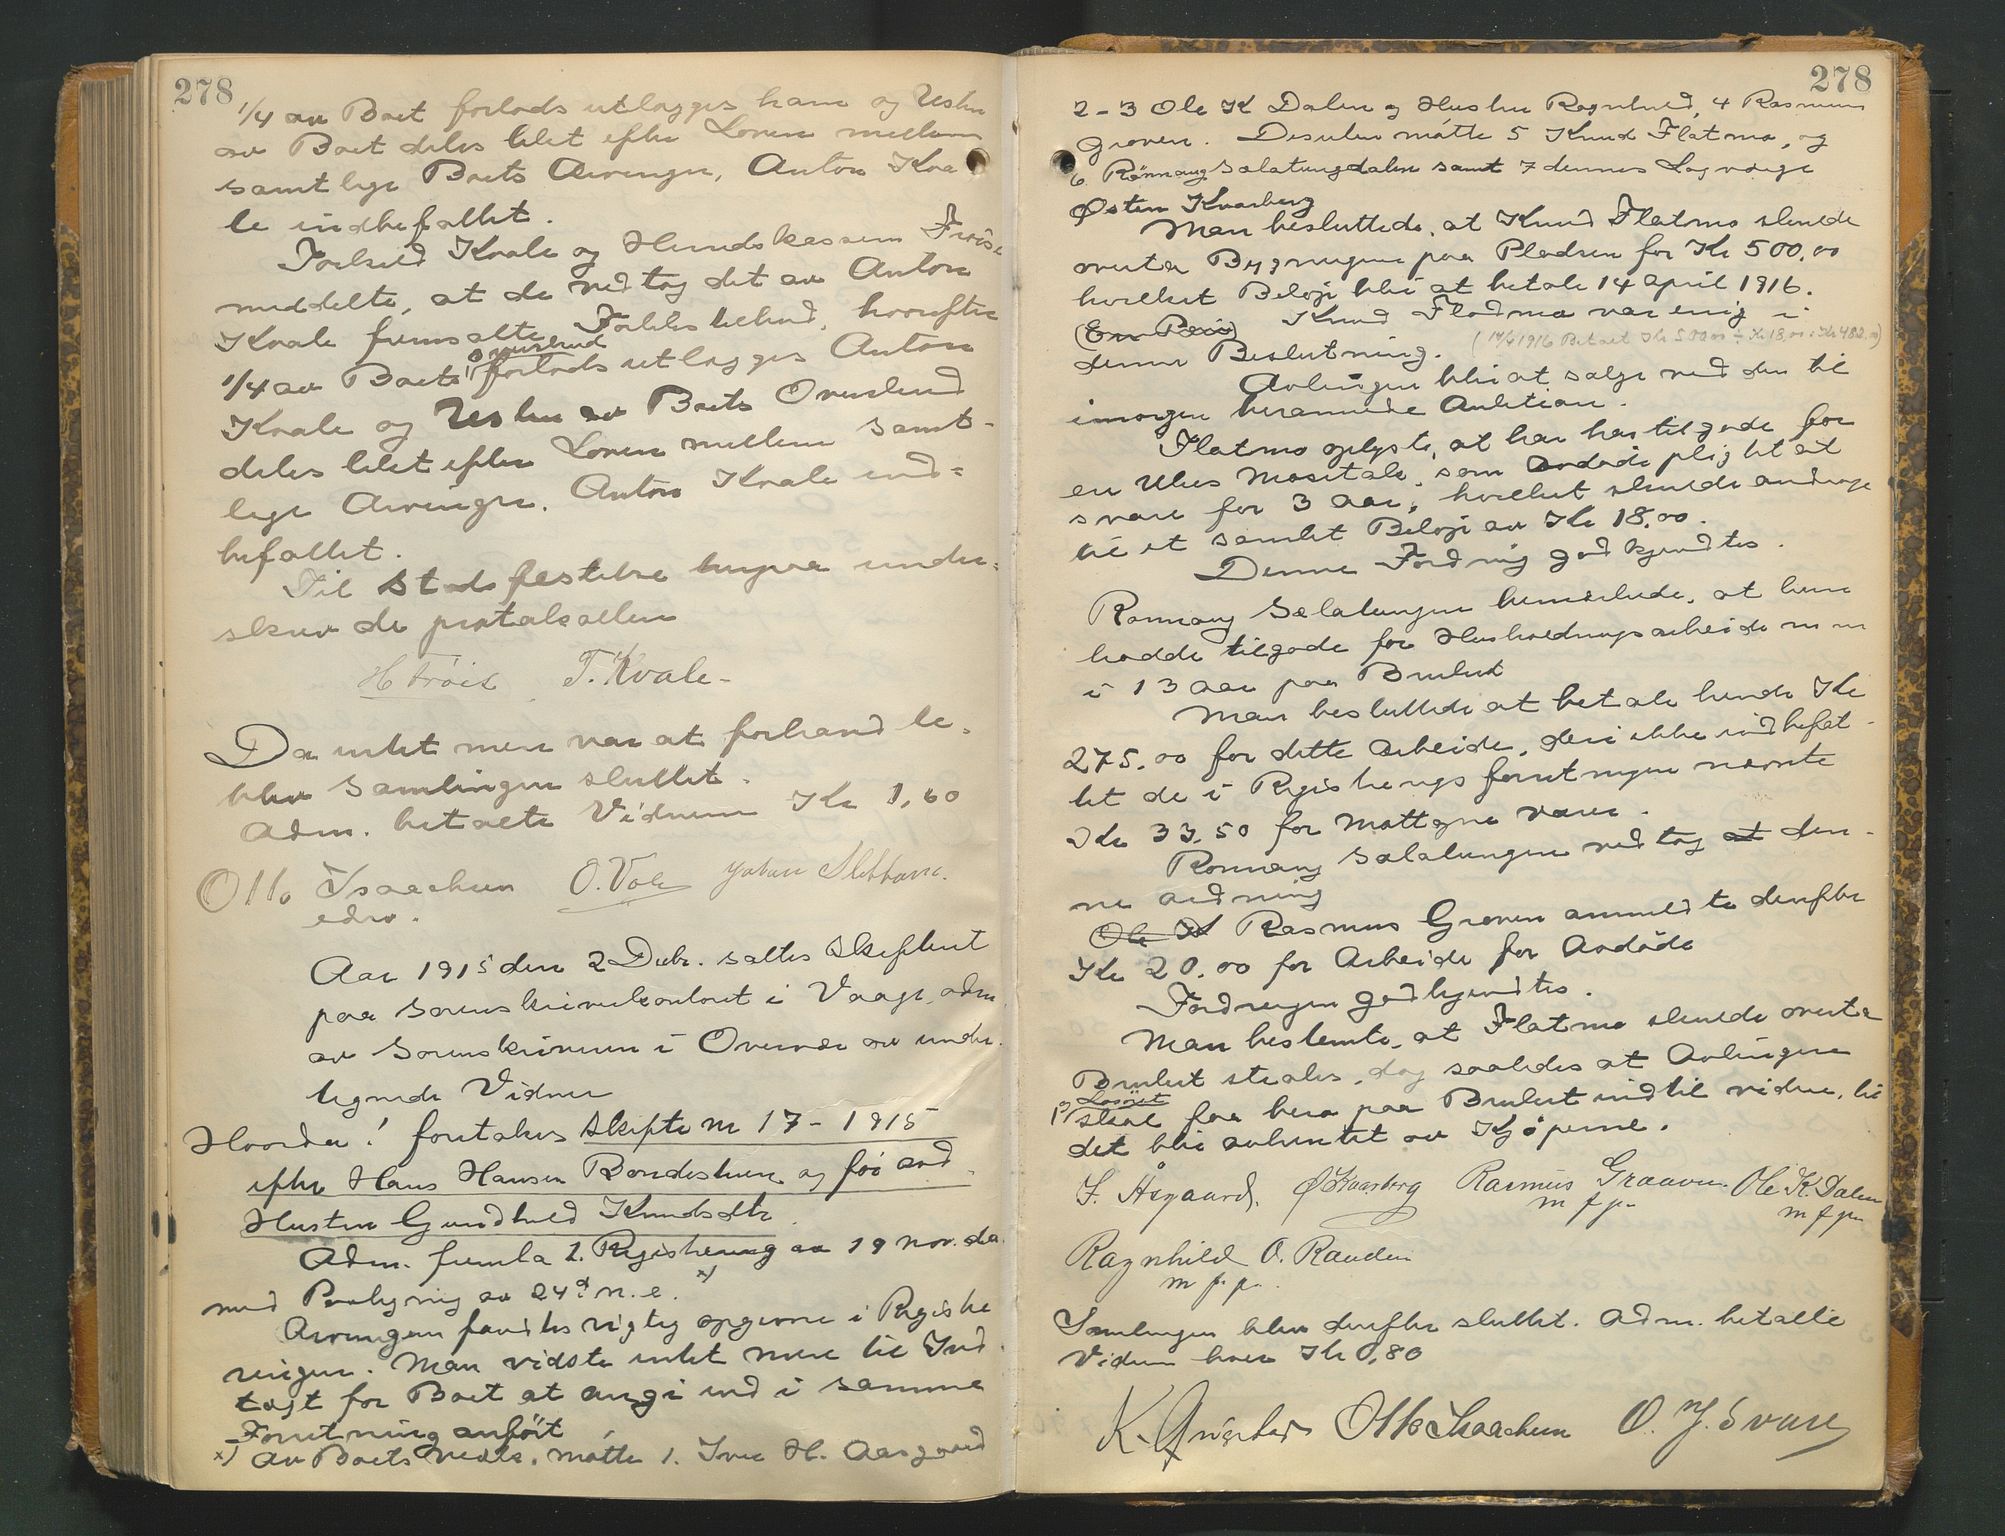 278
1/4 av Boet forlods utlægges ham og Resten
av Boet deles likt efter Loven mellem
samtlige Boets Arvinger, Anton Kva
le indbefattet.
Torkild Kvale og Herredskasserer Frøise
meddelte, at de vedtog det av Anton
Kvale fremsatte Forliksbehud, hvorefter
overskud
1/4 av Boets forlods utlægges Anton
Kvale og Resten av Boets Overskud
deles likt efter Loven mellem samt-
lige Arvinger, Anton Kvale ind-
befattet.
Til Stadfæstelse herpaa under-
skrev de protokollen
H Frøise T. Kvale-
Da intet mere var at forhandle,
blev Samlingen sluttet.
Adm. betalte Vidnerne Kr 1,60
Otto Isaachsen O. Vole Johan Slettane.
edsv.
Aar 1915 den 2 Decbr. sattes Skifteret
paa Sorenskriverkontoret i Vaage, adm.
av Sorenskriveren i Overvær av under-
tegnede Vidner
Hvorda! foretokes Skifte nr 17-1915
efter Hans Hansen Bondestuen og før avd.
Hustru Gundhild Knudsdtr.
Adm. fremla 1. Registrering av 19 Nov. d.a.
med Paategning av 24de n. e. x)
Arvingene fandtes rigtig opgivne i Registre
ringen. Man vidste intet mere til Ind-
tægt for Boet at angi end i samme
Forretning anført
x) Av Boets vedk. møtte 1. Iver H. Aasgaard
278
2-3 Ole K Dalen og Hustru Ragnhild, 4 Rasmus
Graven. Desuten møtte 5 Knud Flatmo, og
6 Rønnaug Sælatungdalen samt 7 dennes Lagværge
Østen Kvarberg
Man besluttede, at Knud Flatmo skulde
overta Bygningene paa Pladsen for Kr 500,00
hvilket Beløp blir at betale 14 April 1916.
Knud Fladmo var enig i
denne Beslutning. (14/4 1916 Betalt Kr 500.00 ÷ Kr 18,00: Kr 482.00)
Avlingen blir at sælge ved den til
imorgen berammede Auktion.
Flatmo oplyste, at han har tilgode for
en Ukes Mosetak, som Avdøde pligtet at
svare for 3 Aar, hvilket skulde andrage
til et samlet Beløp av Kr 18,00.
Denne Fordring godkjendtes.
Rønnaug Sælatungen bemerkede, at hun
hadde tilgode for Husholdningsarbeide m m
i 13 Aar paa Bruket
Man besluttede at betale hende Kr
275.00 for dette Arbeide, deri ikke indbefat-
tet de i Registreringsforretningen nævnte
Kr 33.50 for mottagne varer.
Rønnaug Sælatungen vedtog at den-
ne ordning
Ole K Rasmus Graven anmeldte derefter
Kr 20.00 for Arbeide for Avdøde
Fordringen godkjendtes.
Man bestemte, at Flatmo skulde overta
Bruket straks, dog saaledes at Avlingene
og Løsøret
skal faa bero paa Bruket indtil videre, til
det blir avhentet av Kjøperne.
I. Åsgaard. Ø Kvarberg Rasmus Graaven Ole K. Dalen
m f p. m f p.
Ragnhild O. Randen
m f p.
Samlingen blev derefter sluttet. Adm. betalte
Vidnene hver Kr 0,80
Otto Isaachsen O. J. Svare